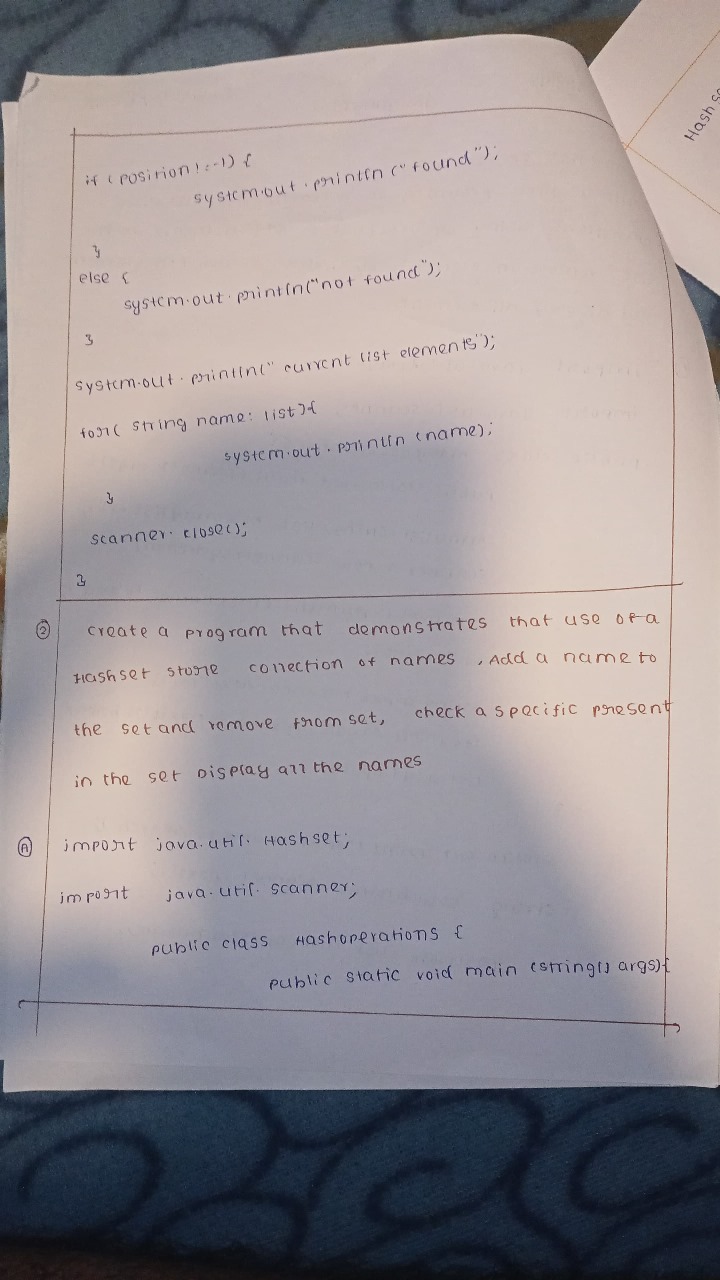 if (position != -1) {
system.out.println ("found");
}
else {
system.out.println("not found");
}
system.out.println(" current list elements");
for( string name: list){
system.out.println (name);
}
scanner.close();
}
② create a program that demonstrates that use of a
Hashset store collection of names , Add a name to
the set and remove from set, check a specific present
in the set Display all the names
Ⓐ import java.util.Hashset;
import java.util.scanner;
public class Hashoperations {
public static void main (string[] args){